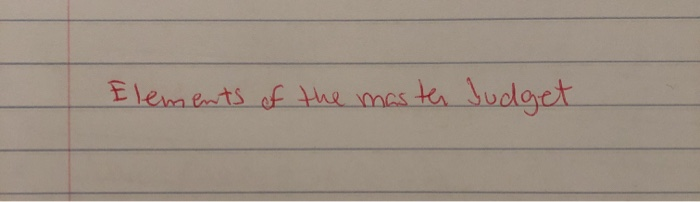 Elements of the master budget